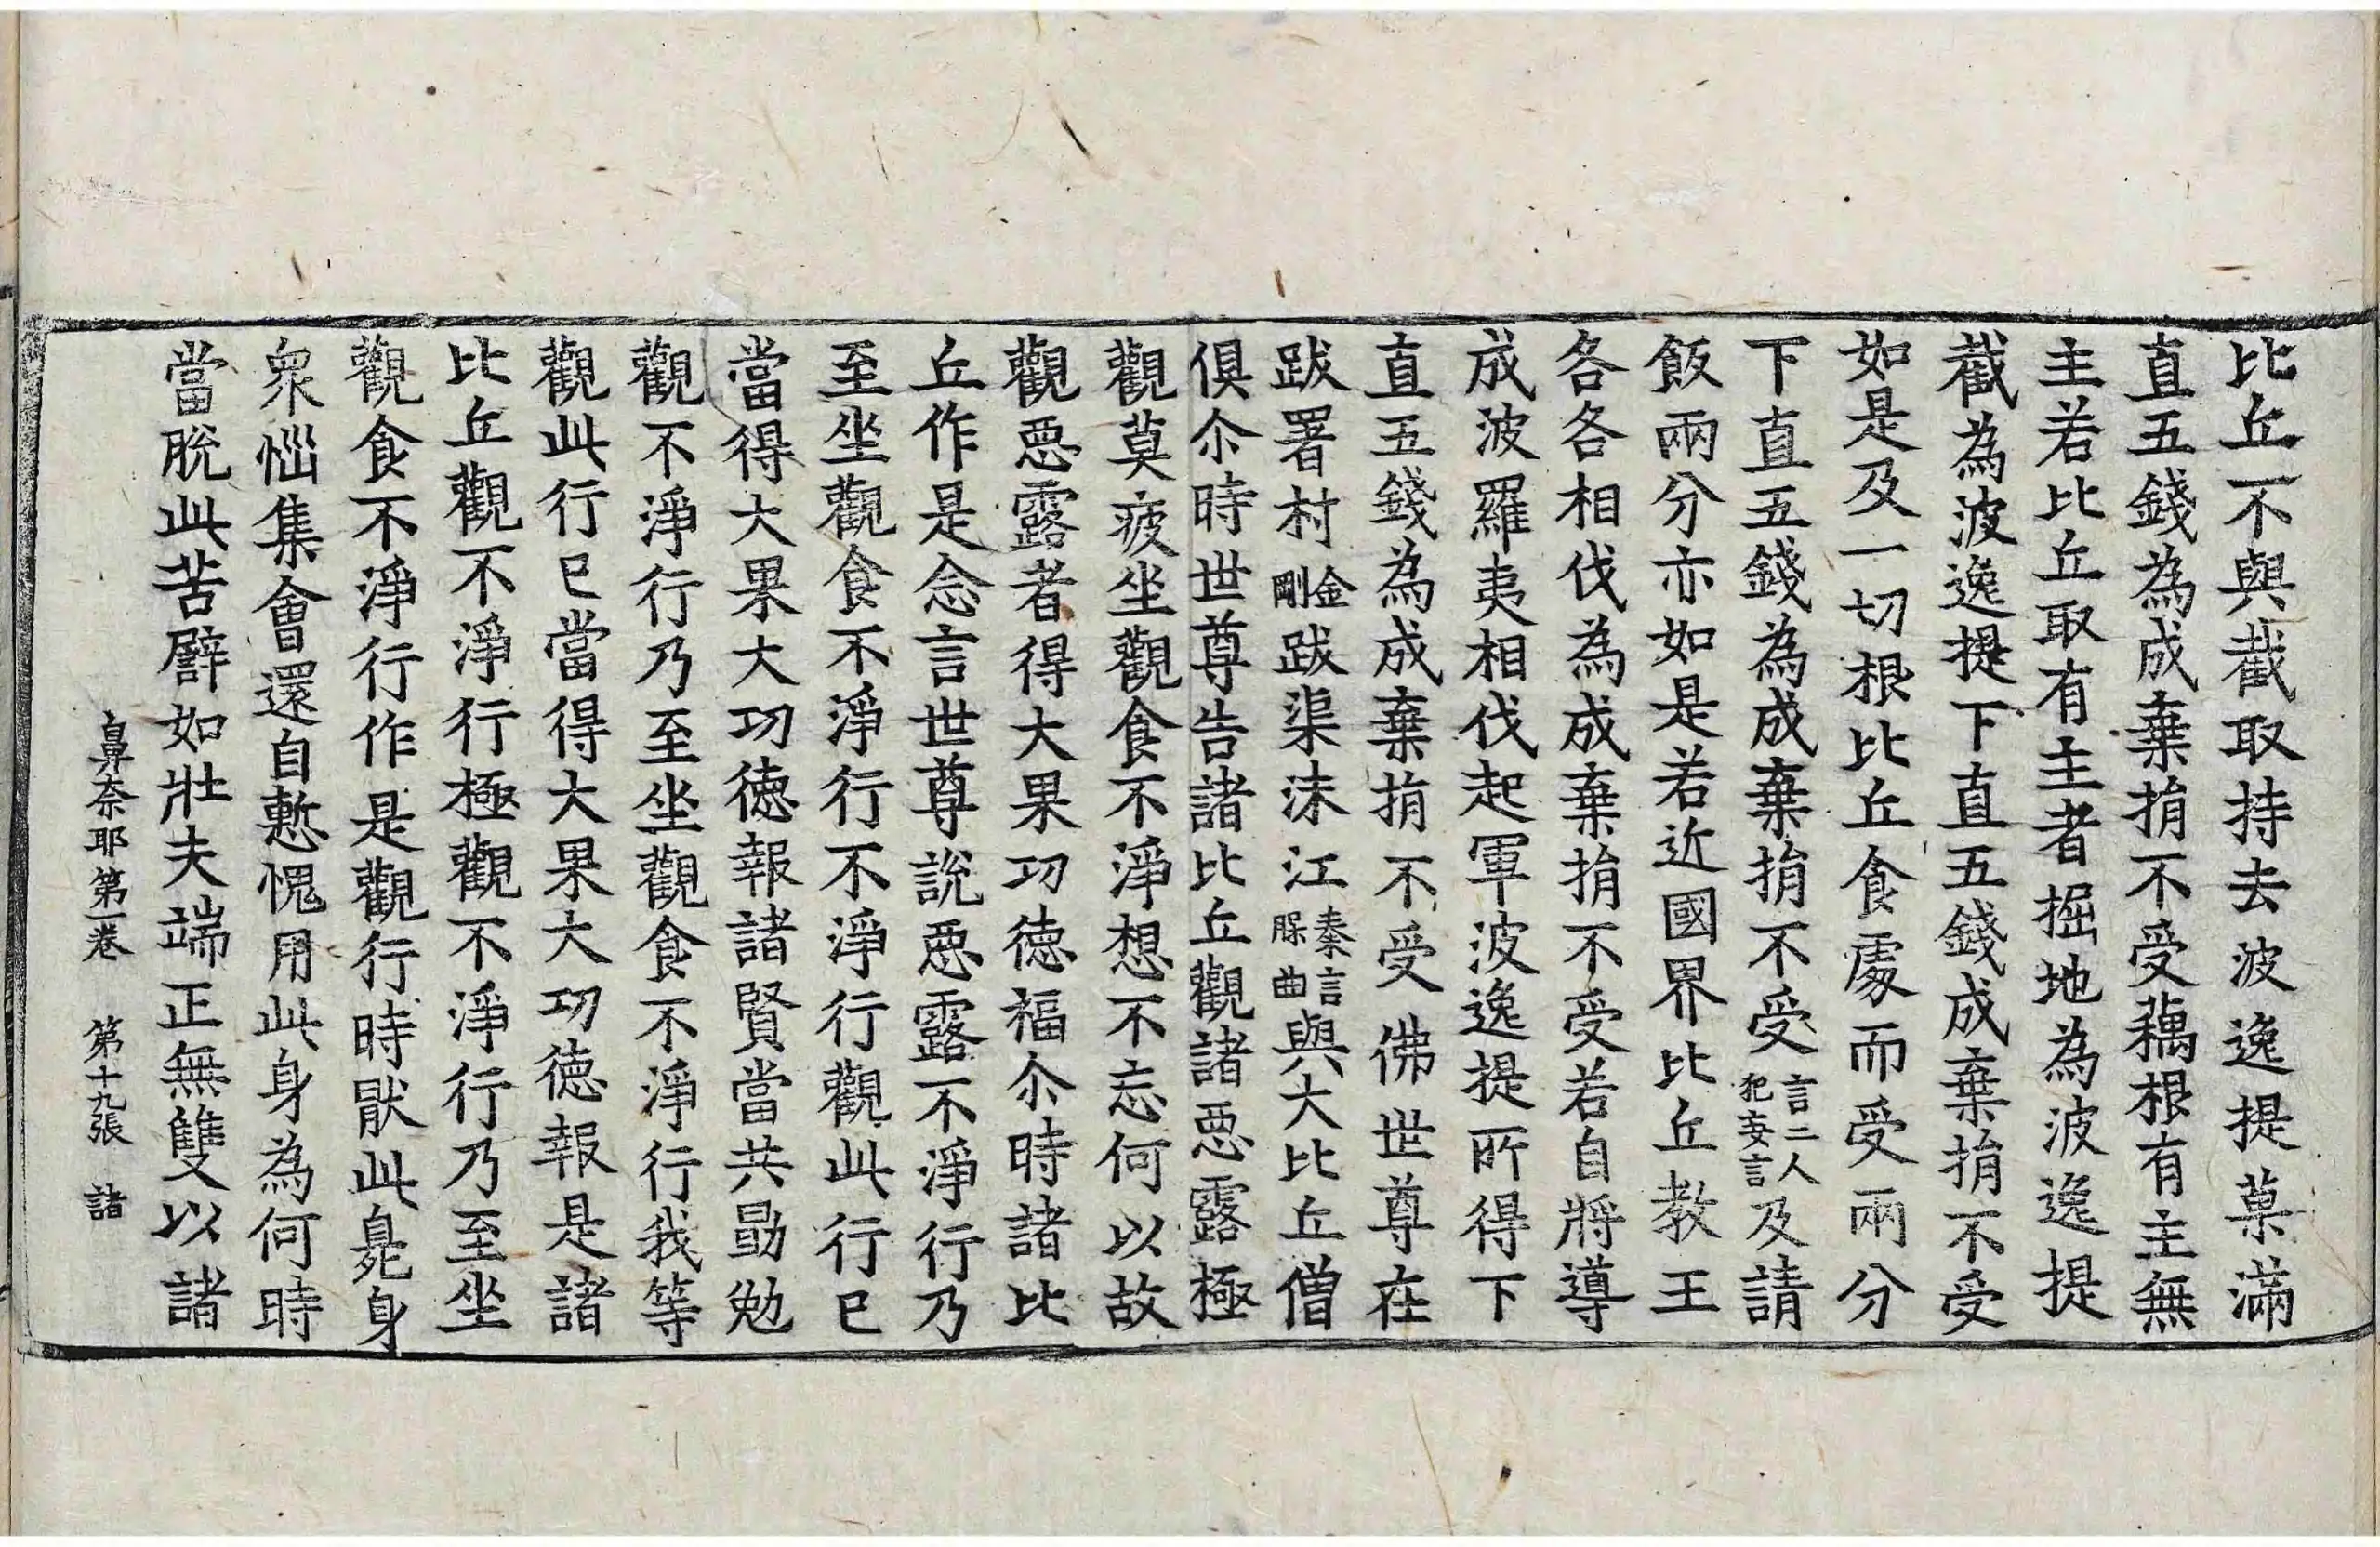 比丘不與截取持去波逸提菓滿
直五錢為成棄捐不受藕根有主無
主若比丘取有主者掘地為波逸提
截為波逸提下直五錢成棄捐不受
如是及一切根比丘食處而受兩分
下直五錢為成棄捐不受言二人犯妄言及請
飯兩分亦如是若近國界比丘教王
各各相伐為成棄捐不受若自將導
成波羅夷相伐起軍波逸提所得下
直五錢為成棄捐不受佛世尊在
跋署村金剛跋渠沫江秦言䐁曲與大比丘僧
俱尒時世尊告諸比丘觀諸惡露極
觀莫疲坐觀食不淨想不忘何以故
觀惡露者得大果功德福尒時諸比
丘作是念言世尊說惡露不淨行乃
至坐觀食不淨行不淨行觀此行已
當得大果大功德報諸賢當共勗勉
觀不淨行乃至坐觀食不淨行我等
觀此行已當得大果大功德報是諸
比丘觀不淨行極觀不淨行乃至坐
觀食不淨行作是觀行時猒此臰身
眾惱集會還自慙愧用此身為何時
當脫此苦譬如壯夫端正無雙以諸
鼻奈耶第一卷 第十九張 諸